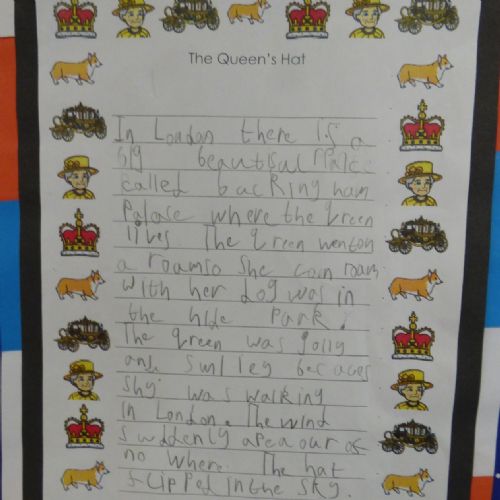 The Queen's Hat
In London there is a
big beautiful Palace
called backingham
Palase where the qreen
lives The qreen wenton
a roamso she can roam
with her dog was in
the hide Park.
The qreen was jolly
and smiley becaues
shy was walking
in London. The wind
suddenly apea our of
no where. The hat
flipped in the sky.